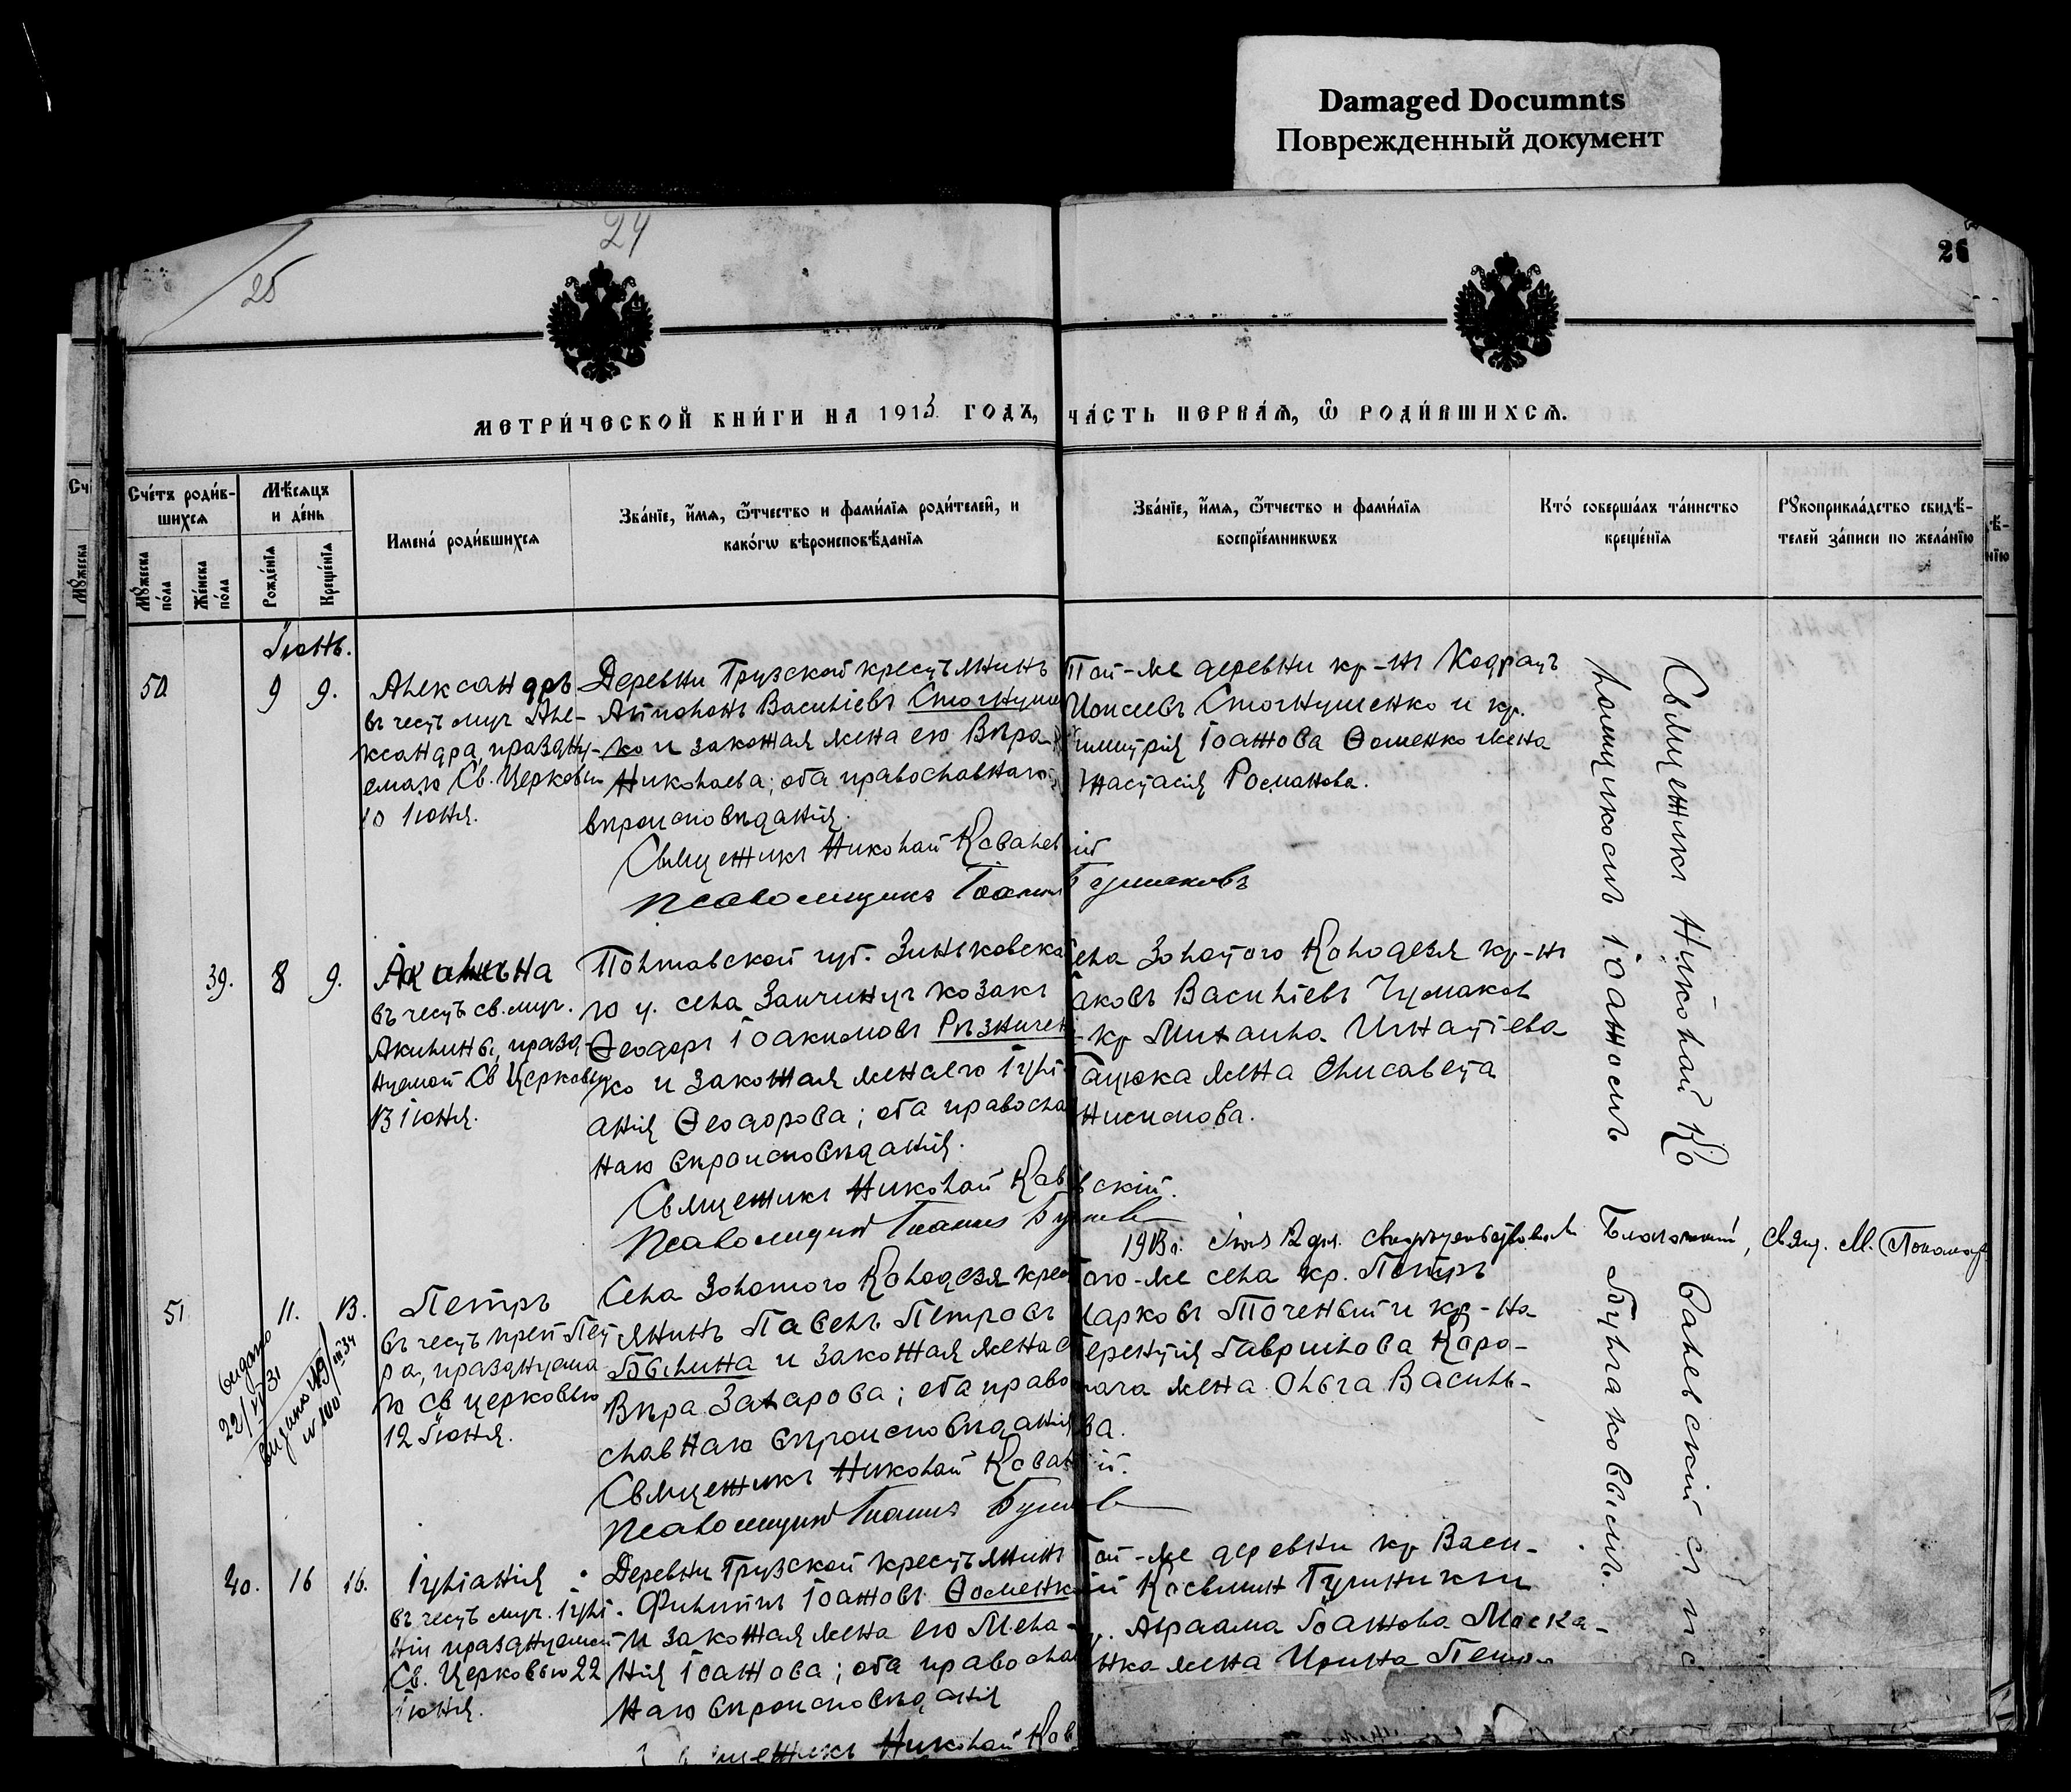 Damaged Documnts
Поврежденный документ
24
25
26
МЕТРИ́ЧЕСКОЙ КНИ́ГИ НА 1913 ГОДЪ, ЧА́СТЬ ПЕРВАѦ, Ѿ РОДИ́ВШИХСѦ.
Сче́тъ роди́в-
шихсѧ
Мꙋжеска по́ла
Же́нска по́ла
Мѣ́сѧцъ
и де́нь
Рожде́нїѧ
Креще́нїѧ
Имена̀ роди́вшихсѧ
Зва́нїе, и́мѧ, ѻ҆́тчество и фами́лїѧ роди́телей, и
како́гѡ вѣроисповѣ́данїѧ
Зва́нїе, и́мѧ, ѻ҆́тчество и фами́лїѧ
воспрїе́мникѡвъ
Кто̀ соверша́лъ та́инство
креще́нїѧ
Рꙋкоприкла́дство свидѣ́-
телей за́писи по жела́нїю
Іюнь.
50
9
9.
Александръ
въ честь муч. Але-
ксандра, праздну-
емаго Св. Церковью
10 Іюня.
Деревни Грузской крестьянинъ
Антонъ Васильевъ Стогнушен
ко и законная жена его Вѣра
Николаева; оба православнаго
вѣроисповѣданія.
Священникъ Николай Ковалевскій
Псаломщикъ Іоаннъ Булгаковъ
Той-же деревни кр-нъ Кодратъ
Моисеевъ Стогнушенко и кр.
Димитрія Іоаннова Ѳоменко жена
Анастасія Романова.
39.
8
9.
Акилина
въ честь св. муч.
Акилины, празд-
нуемой Св Церковью
13 Іюня.
Полтавской губ. Зиньковска
го у. села Заичинцъ козакъ
Ѳеодоръ Іоакимовъ Рѣзничен
ко и законная жена его Іулі-
анія Ѳеодорова; оба правосла
наго вѣроисповѣданія.
Священникъ Николай Ковалевскій.
Псаломщикъ Іоаннъ Булгаковъ
села Золотого Колодезя кр-нъ
Яковъ Васильевъ Чумакъ
и кр Михаила Игнатіева
Гацюка жена Елисавета
Анисимова.
1913 г. Іюля 12 дня. свидѣтельствовалъ Благочинный, Свящ. М. Пономар
51
11.
13.
Петръ
въ честь преп. Пет
ра, праздннуема
го Св церковью
12 Іюня.
Выдано
22/VI 31
Выдано 19/III 34
Села Золотого Колодезя крес
янинъ Павелъ Петровъ
Бѣлина и законная жена е
Вѣра Захарова; оба право
славнаго вѣроисповѣданія
Священникъ Николай Ковалевскій.
Псаломщикъ Іоаннъ Булгаковъ
Того-же села кр. Петръ
Марковъ Точеный и кр-на
Терентія Гаврилова Каро-
жена Ольга Василь-
ва.
40.
16
16.
Іуліанія
въ честь муч. Іулі-
ніи празднуемой
Св. Церковью 22
Іюня.
Деревни Грузской крестьянинъ
Филиппъ Іоанновъ Ѳоменко
и законная жена его Мела-
нія Іоаннова; оба правосла
наго вѣроисповѣданія
Священникъ Николай Ков
Той-же деревни кр Васи-
лій Косьминъ
Авраама Іоаннова Моска-
ленка жена Ирина Петро
Священникъ Николай Ковалевскій съ пс
ломщикомъ Іоанномъ Булгаковымъ.